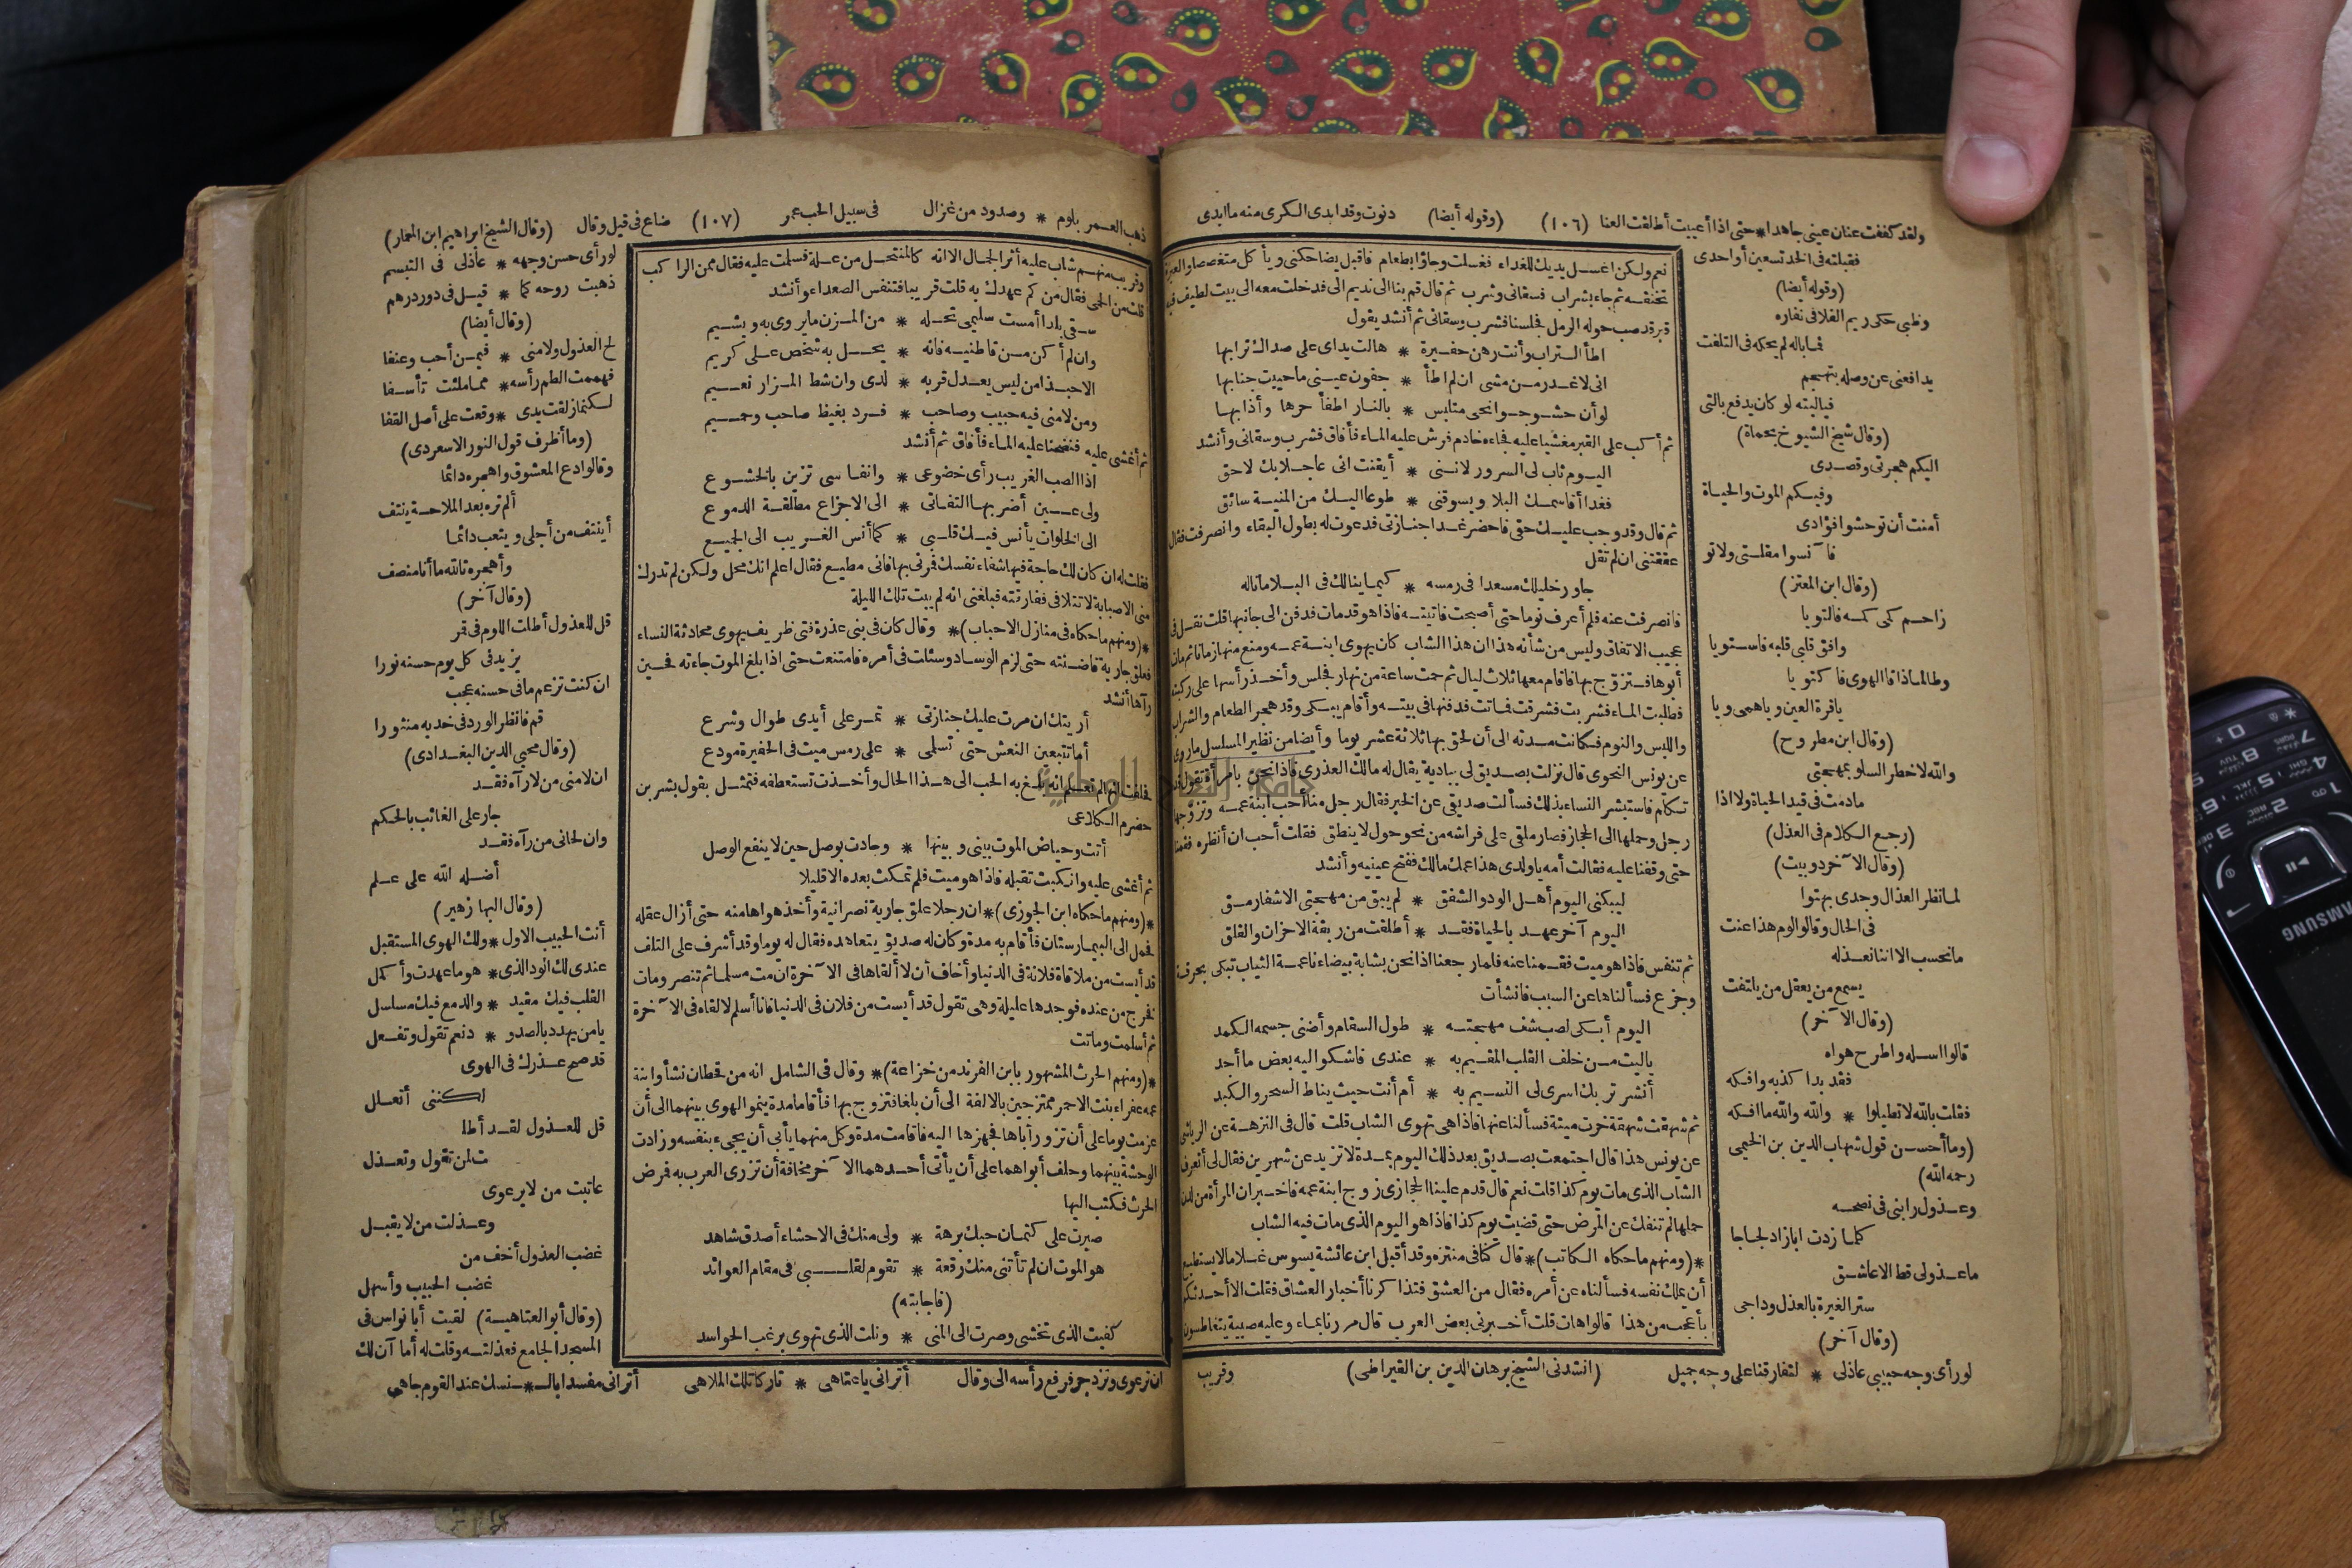 ولقد كففت عنان عيني جاهدا * حتى اذا أعييت أطلقت العنا (١٠٦) (وقوله أيضا) دنوت وقد ابدى الكرى منه ما ابدى
فقبلته في الخد تسعين أو احدى
(وقوله أيضا)
وظبي حكى ريم الفلا في نفاره
فما باله لم يحكه في التلفت
يدافعني عن وصله بتهجم
فياليته لو كان يدفع بالتي
(وقال شيخ الشيوخ بحماة)
اليكم هجرتي وقصدى
وفيكم الموت والحياة
أمنت أن توحشوا فؤادى
فآنسوا مقلتي ولا تو
(وقال ابن المعتز)
زاحم كمى كمه فالتويا
وافق قلبي قلبه فاستويا
وطالما ذاقا الهوى فاكتويا
ياقرة العين ويا همى ويا
(وقال ابن مطروح)
والله لاخطر السلو بمهجتي
مادمت في قيد الحياة ولا اذا
(رجع الكلام في العذل)
(وقال الآخر دوبيت)
لما نظر العذال وجدى بهتوا
في الحال وقالوا لوم هذا عنت
ما نحسب الا اننا نعذله
يسمع من يعقل من يلتفت
(وقال الآخر)
قالوا اسله واطرح هواه
فقد بدا كذبه وافكه
فقلت بالله لا تطيلوا * والله والله ما افكه
(وما أحسن قول شهاب الدين بن الخيمى
رحمه الله)
وعذول رابني في نصحه
كلما زدت ابا زاد لجاجا
ما عذولى قط الا عاشق
ستر الغيرة بالعذل وداجى
(وقال آخر)
لو رأى وجه حبيبي عاذلى * لتفارقنا على وجه جميل (انشدنى الشيخ برهان الدين بن القيراطى)
نعم ولكن اغسل يديك للغداء فغسلت وجاؤا بطعام فاقبل يضاحكنى ويأكل متغصصا والعبرة
تخنقه ثم جاء بشراب فسقانى وشرب ثم قال قم بنا الى نديم الى فدخلت معه الى بيت لطيف فيه
قبر قد صب حوله الرمل فجلسنا فشرب وسقانى ثم أنشد يقول
اطأ التراب وأنت رهن حفيرة * هالت يداى على صداك ترابها
انى لاغدر من مشى ان لم اطأ * بجفون عينى ما حييت جنابها
لو أن حشو جوانحى متلبس * بالنار اطفأ حرها وأذابها
ثم أكب على القبر مغشيا عليه فجاءه خادم فرش عليه الماء فأفاق فشرب وسقانى وأنشد
اليوم ثاب لى السرور لاننى * أيقنت انى عاجلا بك لاحق
فغدا أقاسمك البلا ويسوقنى * طوعا اليك من المنية سائق
ثم قال وقد وجب عليك حقى فاحضر غدا جنازتى فدعوت له بطول البقاء وانصرفت فقال
عققتنى ان لم تقل
جاور خليلك مسعدا في رمسه * كيما ينالك في البلا ما ناله
فانصرفت عنه فلم أعرف نوما حتى أصبحت فاتيته فاذا هو قد مات فدفن الى جانبها قلت نقل في
عجيب الاتفاق وليس من شأنه هذا ان هذا الشاب كان يهوى ابنة عمه ومنع منها زمانا ثم مات
أبوها فتزوج بها فاقام معها ثلاث ليال ثم حمت ساعة من نهار فجلس وأخذ رأسها على ركبته
فطلبت الماء فشربت فشرقت فماتت فدفنها في بيته وأقام يبكى وقد هجر الطعام والشراب
واللبس والنوم فكانت مدته الى أن لحق بها ثلاثة عشر يوما وأيضا من نظير المسلسل ما روى
عن يونس النحوى قال نزلت بصديق لى ببادية يقال له مالك العذرى فاذا نحن بامرأة تقول قد
تكلم فاستبشر النساء بذلك فسألت صديقى عن الخبر فقال رجل منا أحب ابنة عمه وتزوجها
رجل وحملها الى الحجاز فصار ملقى على فراشه من نحو حول لا ينطق فقلت أحب ان أنظره فقمنا
حتى وقفنا عليه فقالت أمه ياولدى هذا عمك مالك ففتح عينيه وأنشد
ليبكنى اليوم أهل الود والشفق * لم يبق من مهجتى الاشفا رمق
اليوم آخر عهد بالحياة فقد * أطلقت من ربقة الاحزان والقلق
ثم تنفس فاذا هو ميت فقمنا عنه فلما رجعنا اذا نحن بشابة بيضاء ناعمة الثياب تبكى بحرقة
وجزع فسألناها عن السبب فانشأت
اليوم أبكى لصب شف مهجته * طول السقام وأضنى جسمه الكمد
ياليت من خلف القلب المقيم به * عندى فاشكو اليه بعض ما أجد
أنشر تربك اسرى لى النسيم به * أم أنت حيث يناط السحر والكبد
ثم شهقت شهقة فخرت ميتة فسألنا عنها فاذا هى تهوى الشاب قلت قال في النزهة عن الرياشى
عن يونس هذا قال اجتمعت بصديق بعد ذلك اليوم بمدة لا تزيد عن شهرين فقال لى أتعرف
الشاب الذى مات يوم كذا قلت نعم قال قدم علينا الحجازى زوج ابنة عمه فاخبر ان المرأة من لدن
حملها لم تنفك عن المرض حتى قضيت يوم كذا فاذا هو اليوم الذى مات فيه الشاب
*(ومنهم ما حكاه الكاتب)* قال كنا في منتزه وقد أقبل ابن عائشة يسوس غلاما لا يستطيع
أن يملك نفسه فسألناه عن أمره فقال من العشق فتذاكرنا أخبار العشاق فقلت الا أحدثكم
بأعجب من هذا قالوا هات قلت أخبرنى بعض العرب قال مررنا بماء وعليه صبية يتغاطسون
وقريب
ذهب العمر بلوم * وصدود من غزال في سبيل الحب عمر (١٠٧) ضاع في قيل وقال (وقال الشيخ ابراهيم ابن المعمار)
وقريب منهم شاب عليه أثر الجمال الا انه كالمنتحل من علة فسلمت عليه فقال من الراكب
قلت من الحمى فقال من كم عهدك به قلت قريبا فتنفس الصعداء وأنشد
سقى بلدا أمست سليمى تحله * من المزن ما يروى به ويشيم
وان لم أكن من قاطنيه فانه * يحل به شخص على كريم
الاحبذا من ليس يعدل قربه * لدى وان شط المزار نعيم
ومن لامنى فيه حبيب وصاحب * فرد بغيظ صاحب وحميم
ثم أغشى عليه فنضحنا عليه الماء فأفاق ثم أنشد
اذا الصب الغريب رأى خضوعى * وانفاسى تزين بالخشوع
ولى عين أضر بها التفاتى * الى الاجزاع مطلقة الدموع
الى الخلوات يأنس فيك قلبى * كما أنس الغريب الى الجميع
فقلت له ان كان لك حاجة فيها شفاء نفسك فمرنى بها فانى مطيع فقال اعلم انك محل ولكن لم تدرك
منى الاصبابة لا تتلافى ففارقته فبلغنى انه لم يبت تلك الليلة
*(ومنهم ما حكاه في منازل الاحباب)* وقال كان في بنى عذرة فتى ظريف يهوى محادثة النساء
فعلق جارية فاضنته حتى لزم الوساد وسئلت في أمره فامتنعت حتى اذا بلغ الموت جاءته فحين
رآها أنشد
أريتك ان مرت عليك جنازتى * تمر على أيدى طوال وشرع
أما تتبعين النعش حتى تسلمى * على رمس ميت في الحفيرة مودع
فحلفت انها لم تعلم انه بلغ به الحب الى هذا الحال وأخذت تستعطفه فتمثل بقول بشر بن
حضرم الكلاعى
أتت وحياض الموت بينى وبينها * وجادت بوصل حين لا ينفع الوصل
ثم أغشى عليه وانكبت تقبله فاذا هو ميت فلم تمكث بعده الا قليلا
*(ومنهم ما حكاه ابن الجوزى)* ان رجلا علق جارية نصرانية وأخذ هواها منه حتى أزال عقله
فحمل الى البيمارستان فأقام به مدة وكان له صديق يتعاهده فقال له يوما وقد أشرف على التلف
قد أيست من ملاقاة فلانة في الدنيا وأخاف أن لا ألقاها في الآخرة ان مت مسلما ثم تنصر ومات
فخرج من عنده فوجدها عليلة وهى تقول قد أيست من فلان في الدنيا فانا أسلم لالقاه في الآخرة
ثم أسلمت وماتت
*(ومنهم الحرث المشهور بابن الفرند من خزاعة)* وقال في الشامل انه من قحطان نشأ وابنة
عمه عفراء بنت الاحمر ممتزجين بالالفة الى أن بلغا فتزوج بها فأقاما مدة ينمو الهوى بينهما الى أن
عزمت يوما على أن تزور أباها فجهزها اليه فاقامت مدة وكل منهما يأبى أن يجىء بنفسه وزادت
الوحشة بينهما وحلف أبواهما على أن يأتى أحدهما الآخر مخافة أن تزرى العرب به فمرض
الحرث فكتب اليها
صبرت على كتمان حبك برهة * ولى منك في الاحشاء أصدق شاهد
هو الموت ان لم تأتنى منك رقعة * تقوم لقلبى في مقام العوائد
(فاجابته)
كفيت الذى تخشى وصرت الى المنى * ونلت الذى تهوى برغب الحواسد
لو رأى حسن وجهه * عاذلى في التبسم
ذهبت روحه كما * قيل في دور درهم
(وقال أيضا)
لج العذول ولامنى * فيمن أحب وعنفا
فهممت الطم رأسه * مما ملئت تأسفا
لكنما زلقت يدى * وقعت على أصل القفا
(وما أظرف قول النور الاسعردى)
وقالوا دع المعشوق واهجره دائما
ألم تره بعد الملاحة ينتف
أينتف من أجلى ويتعب دائما
وأهجره تالله ما أنا منصف
(وقال آخر)
قل للعذول أطلت اللوم في قمر
يزيد في كل يوم حسنه نورا
ان كنت تزعم ما في حسنه عجب
قم فانظر الورد في خديه منثورا
(وقال محيي الدين البغدادى)
ان لامنى من لا رآه فقد
جار على الغائب بالحكم
وان لحانى من رآه فقد
أضله الله على علم
(وقال البها زهير)
أنت الحبيب الاول * ولك الهوى المستقبل
عندى لك الود الذى * هو ما عهدت وأكمل
القلب فيك مقيد * والدمع فيك مسلسل
يا من يهدد بالصدو * د نعم تقول وتفعل
قد صح عذرك في الهوى
لكننى أتعلل
قل للعذول لقد أطلـ
ت لمن تقول وتعذل
عاتبت من لا يرعوى
وعذلت من لا يقبل
غضب العذول أخف من
غضب الحبيب وأسهل
(وقال أبو العتاهية) لقيت أبا نواس في
المسجد الجامع فعذلته وقلت له أما آن لك
ان ترعوى وتزدجر فرفع رأسه الى وقال أترانى يا عتاهى * تاركا تلك الملاهى أترانى مفسدا بالـ * ـنسك عند القوم جاهى